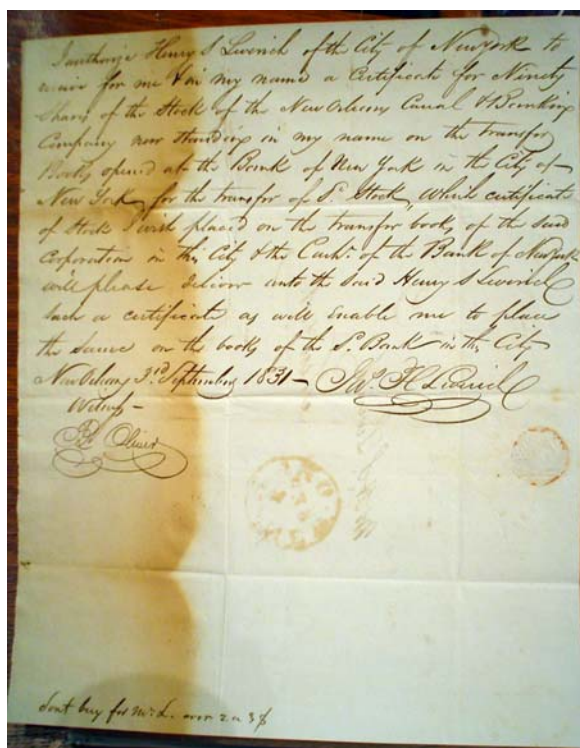 I authorize Henry S Leverich of the City of Newyork to
receive for me & in my name a Certificate for Ninety
Shares of the Stock of the New Orleans Canal & Banking
Company now standing in my name on the transfer
Books opened at the Bank of New York in the City of
New York for the transfer of Sd. Stock, which certificate
of Stock I wish placed on the transfer books of the said
Corporation in this City & the Cashr. of the Bank of Newyork
will please deliver unto the said Henry S Leverich
such a certificate as will enable me to place
the same on the books of the Sd. Bank in this City
New Orleans 3rd September 1831 —
Witness —
Oliver
dont buy for Mr. L. over 2 a 3 $